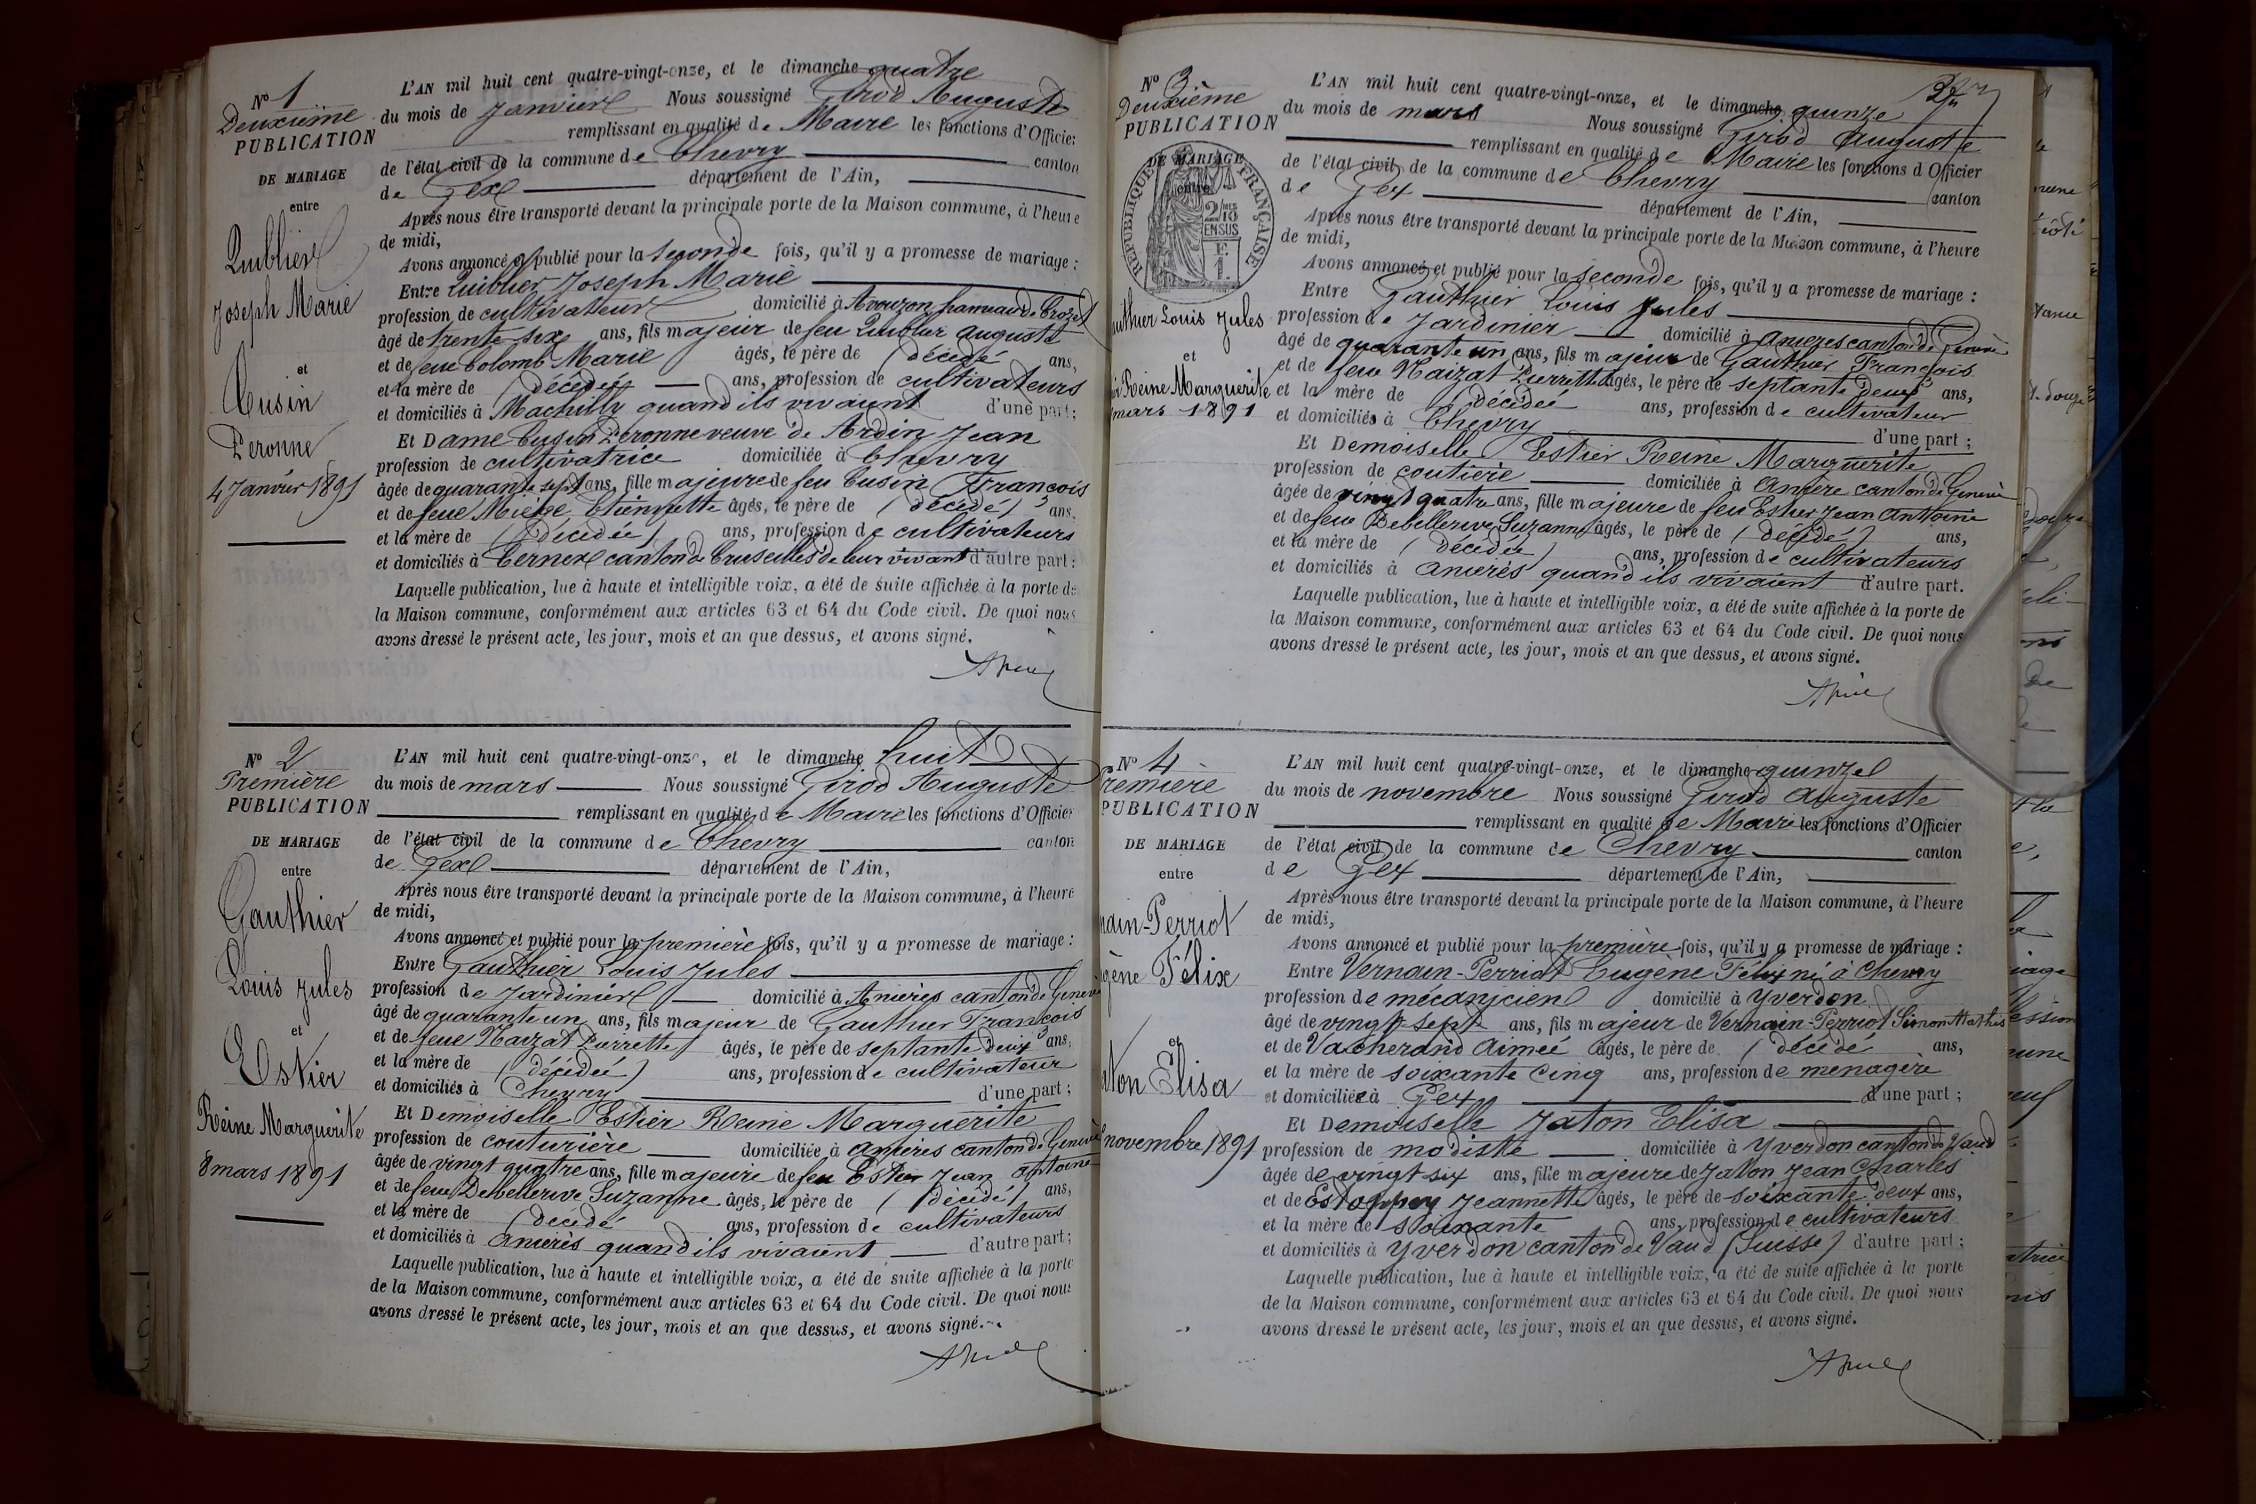 N° 1
Deuxième
PUBLICATION
DE MARIAGE
entre
Quiblier
Joseph Marie
et
Cusin
Peronne
4 Janvier 1891
L'AN mil huit cent quatre-vingt-onze, et le dimanche quatre
du mois de Janvier Nous soussigné Girod Auguste
remplissant en qualité de Maire les fonctions d'Officier
de l'état civil de la commune de Chevry canton
de Gex département de l'Ain,
Après nous être transporté devant la principale porte de la Maison commune, à l'heure
de midi,
Avons annoncé et publié pour la seconde fois, qu'il y a promesse de mariage :
Entre Quiblier Joseph Marie
profession de cultivateur domicilié à Avouzon hameau de Crozet
âgé de trente six ans, fils majeur de feu Quiblier Auguste
et de feue Colomb Marie âgés, le père de (décédé ans,
et la mère de (décédée ans, profession de cultivateurs
et domiciliés à Machilly quand ils vivaient d'une part ;
Et Dame Cusin Peronne veuve de Ardin Jean
profession de cultivatrice domiciliée à Chevry
âgée de quarante sept ans, fille majeure de feu Cusin François
et de feue Etiennette âgés, le père de (décédé) ans,
et la mère de (décédée) ans, profession de cultivateurs
et domiciliés à Cernex canton de Cruseilles de leur vivant d'autre part :
Laquelle publication, lue à haute et intelligible voix, a été de suite affichée à la porte de
la Maison commune, conformément aux articles 63 et 64 du Code civil. De quoi nous
avons dressé le présent acte, les jour, mois et an que dessus, et avons signé.
N° 2
Première
PUBLICATION
DE MARIAGE
entre
Gauthier
Louis Jules
et
Estier
Reine Marguerite
8 mars 1891
L'AN mil huit cent quatre-vingt-onze, et le dimanche huit
du mois de mars Nous soussigné Girod Auguste
remplissant en qualité de Maire les fonctions d'Officier
de l'état civil de la commune de Chevry canton
de Gex département de l'Ain,
Après nous être transporté devant la principale porte de la Maison commune, à l'heure
de midi,
Avons annoncé et publié pour la première fois, qu'il y a promesse de mariage :
Entre Gauthier Louis Jules
profession de Jardinier domicilié à Anières canton de Genève
âgé de quarante un ans, fils majeur de Gauthier François
et de feue Naizat Pierrette âgés, le père de septante deux ans,
et la mère de (décédée) ans, profession de cultivateur
et domiciliés à Chevry d'une part ;
Et Demoiselle Estier Reine Marguerite
profession de couturière domiciliée à Anières canton de Genève
âgée de vingt quatre ans, fille majeure de feu Estier Jean Antoine
et de feue Debellerive Suzanne âgés, le père de (décédé) ans,
et la mère de (décédé ans, profession de cultivateurs
et domiciliés à Anières quand ils vivaient d'autre part ;
Laquelle publication, lue à haute et intelligible voix, a été de suite affichée à la porte
de la Maison commune, conformément aux articles 63 et 64 du Code civil. De quoi nous
avons dressé le présent acte, les jour, mois et an que dessus, et avons signé.
N° 3
Deuxième
PUBLICATION
DE MARIAGE
entre
RÉPUBLIQUE FRANÇAISE
2/10 EN SUS
F. 1.
Louis Jules
et
Reine Marguerite
mars 1891
L'AN mil huit cent quatre-vingt-onze, et le dimanche quinze
du mois de mars Nous soussigné Girod Auguste
remplissant en qualité de Maire les fonctions d'Officier
de l'état civil de la commune de Chevry canton
de Gex département de l'Ain,
Après nous être transporté devant la principale porte de la Maison commune, à l'heure
de midi,
Avons annoncé et publié pour la seconde fois, qu'il y a promesse de mariage :
Entre Gauthier Louis Jules
profession de Jardinier domicilié à Anieres canton de Genève
âgé de quarante un ans, fils majeur de Gauthier François
et de feue Naizat Pierrette âgés, le père de septante deux ans,
et la mère de (décédée ans, profession de cultivateur
et domiciliés à Chevry d'une part ;
Et Demoiselle Estier Reine Marguerite
profession de coutière domiciliée à Anière canton de Genève
âgée de vingt quatre ans, fille majeure de feu Estier Jean Antoine
et de feue Debellerive Suzanne âgés, le père de (décédé) ans,
et la mère de (décédée) ans, profession de cultivateurs
et domiciliés à Anierès quand ils vivaient d'autre part.
Laquelle publication, lue à haute et intelligible voix, a été de suite affichée à la porte de
la Maison commune, conformément aux articles 63 et 64 du Code civil. De quoi nous
avons dressé le présent acte, les jour, mois et an que dessus, et avons signé.
N° 4
Première
PUBLICATION
DE MARIAGE
entre
main-Perriot
gène Félix
et
aton Elisa
novembre 1891
L'AN mil huit cent quatre-vingt-onze, et le dimanche quinze
du mois de novembre Nous soussigné Girod Auguste
remplissant en qualité de Maire les fonctions d'Officier
de l'état civil de la commune de Chevry canton
de Gex département de l'Ain,
Après nous être transporté devant la principale porte de la Maison commune, à l'heure
de midi,
Avons annoncé et publié pour la première fois, qu'il y a promesse de mariage :
Entre Vernain-Perriot Eugène Félix né à Chevry
profession de mécanicien domicilié à Yverdon
âgé de vingt-sept ans, fils majeur de Vernain-Perriot Simon Mathis
et de Vacherand Aimeé âgés, le père de (décédé ans,
et la mère de soixante cinq ans, profession de menagère
et domiciliée à Gex d'une part ;
Et Demoiselle Jaton Elisa
profession de modiste domiciliée à Yverdon canton de Vaud
âgée de vingt six ans, fille majeure de Jaton Jean Charles
et de Estoppey Jeannette âgés, le père de soixante deux ans,
et la mère de soixante ans, profession de cultivateurs
et domiciliés à Yverdon canton de Vaud (Suisse) d'autre part ;
Laquelle publication, lue à haute et intelligible voix, a été de suite affichée à la porte
de la Maison commune, conformément aux articles 63 et 64 du Code civil. De quoi nous
avons dressé le présent acte, les jour, mois et an que dessus, et avons signé.